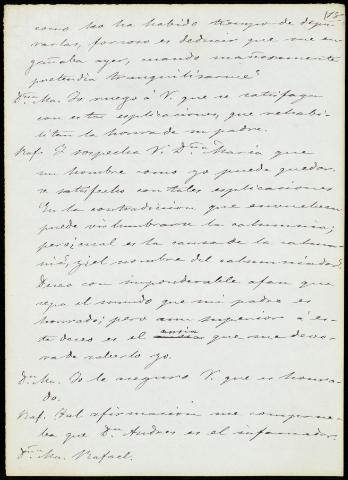 15
como no ha habido tiempo de depu-
rarlas, forzoso es deducir que me en-
gañaba ayer, cuando mañosamente
pretendia tranquilizarme?
Dña Ma. Yo ruego á V. que se satisfaga
con estas esplicaciones, que rehabi-
litan la honra de su padre.
Raf. Y sospecha V. Dña Maria que
un hombre como yo puede quedar-
se satisfecho con tales esplicaciones
En la contradicion que envuelven
puede vislumbrarse la calumnia;
pero ¿cual es la causa de la calum-
nia, y el nombre del calumniador?
Deseo con imponderable afan que
sepa el mundo que mi padre es
honrado; pero aun superior á es-
te deseo es el ansia que me devo-
ra de saberlo yo.
Dña Ma. Yo le aseguro á V. que es honra-
do.
Raf. Tal afirmacion me comprue-
ba que Dn Andres es el infamador.
Dña Ma. Rafael.